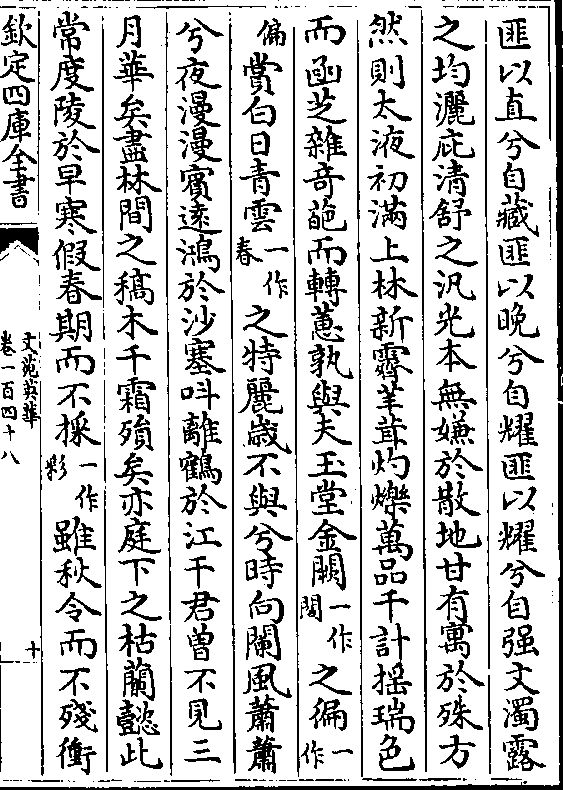 匪以直兮自藏匪以晚兮自耀匪以耀兮自强文濁露
之均灑庇清舒之汎光本無嫌於散地甘有寓於殊方
然則太液初滿上林新霽芊茸灼爍萬品千計搖瑞色
而函芝雜奇葩而轉蕙孰與夫玉堂金闕一作閣之徧一作
偏賞白日青雲一作春之特麗歲不與兮時向闌風蕭蕭
兮夜漫漫賓遠鴻於沙塞呌離鶴於江干君曾不見三
月華矣盡林間之稿木千霜殞矣亦庭下之枯蘭懿此
常度陵於早寒假春期而不採一作彩雖秋令而不殘衝
欽定四庫全書
文苑英華
卷一百四十八
十